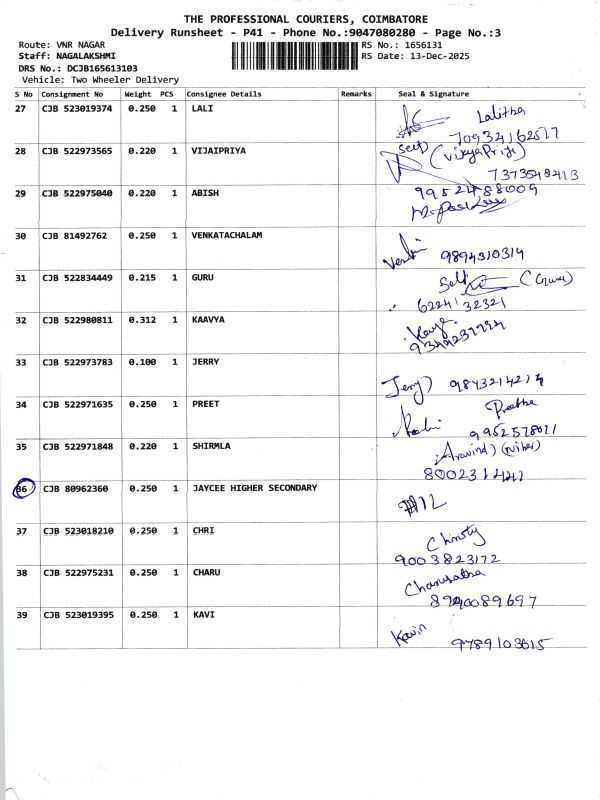 THE PROFESSIONAL COURIERS, COIMBATORE
Delivery Runsheet - P41 - Phone No.:9047080280 - Page No.:3
Route: VNR NAGAR RS No.: 1656131
Staff: NAGALAKSHMI RS Date: 13-Dec-2025
DRS No.: DCJB165613103
Vehicle: Two Wheeler Delivery
S No Consignment No Weight PCS Consignee Details Remarks Seal & Signature
27 CJB 523019374 0.250 1 LALI Lalitha
28 CJB 522973565 0.220 1 VIJAIPRIYA Self
7373548413
29 CJB 522975040 0.220 1 ABISH
30 CJB 81492762 0.250 1 VENKATACHALAM
9894310314
31 CJB 522834449 0.215 1 GURU Self (Guru)
6224132321
32 CJB 522980811 0.312 1 KAAVYA
33 CJB 522973783 0.100 1 JERRY
Jerry)
34 CJB 522971635 0.250 1 PREET Preetha
35 CJB 522971848 0.220 1 SHIRMLA Aravind)
36 CJB 80962360 0.250 1 JAYCEE HIGHER SECONDARY
37 CJB 523018210 0.250 1 CHRI Christy
9003823172
38 CJB 522975231 0.250 1 CHARU
39 CJB 523019395 0.250 1 KAVI Kavin
9789103615